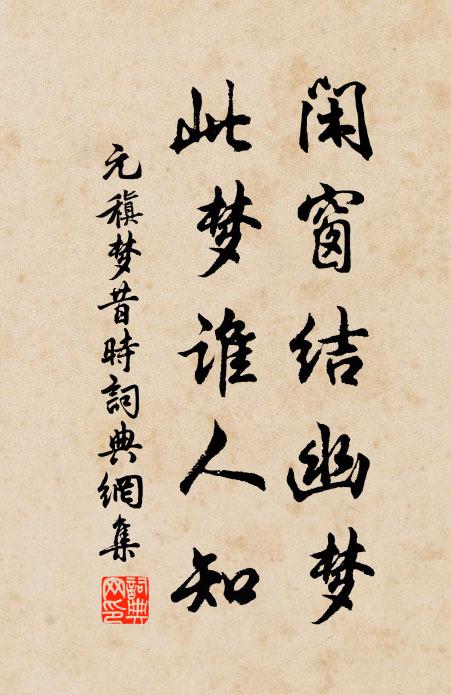 闲窗结幽梦
此梦谁人知
元稹梦昔時詞典網集
詞典网印